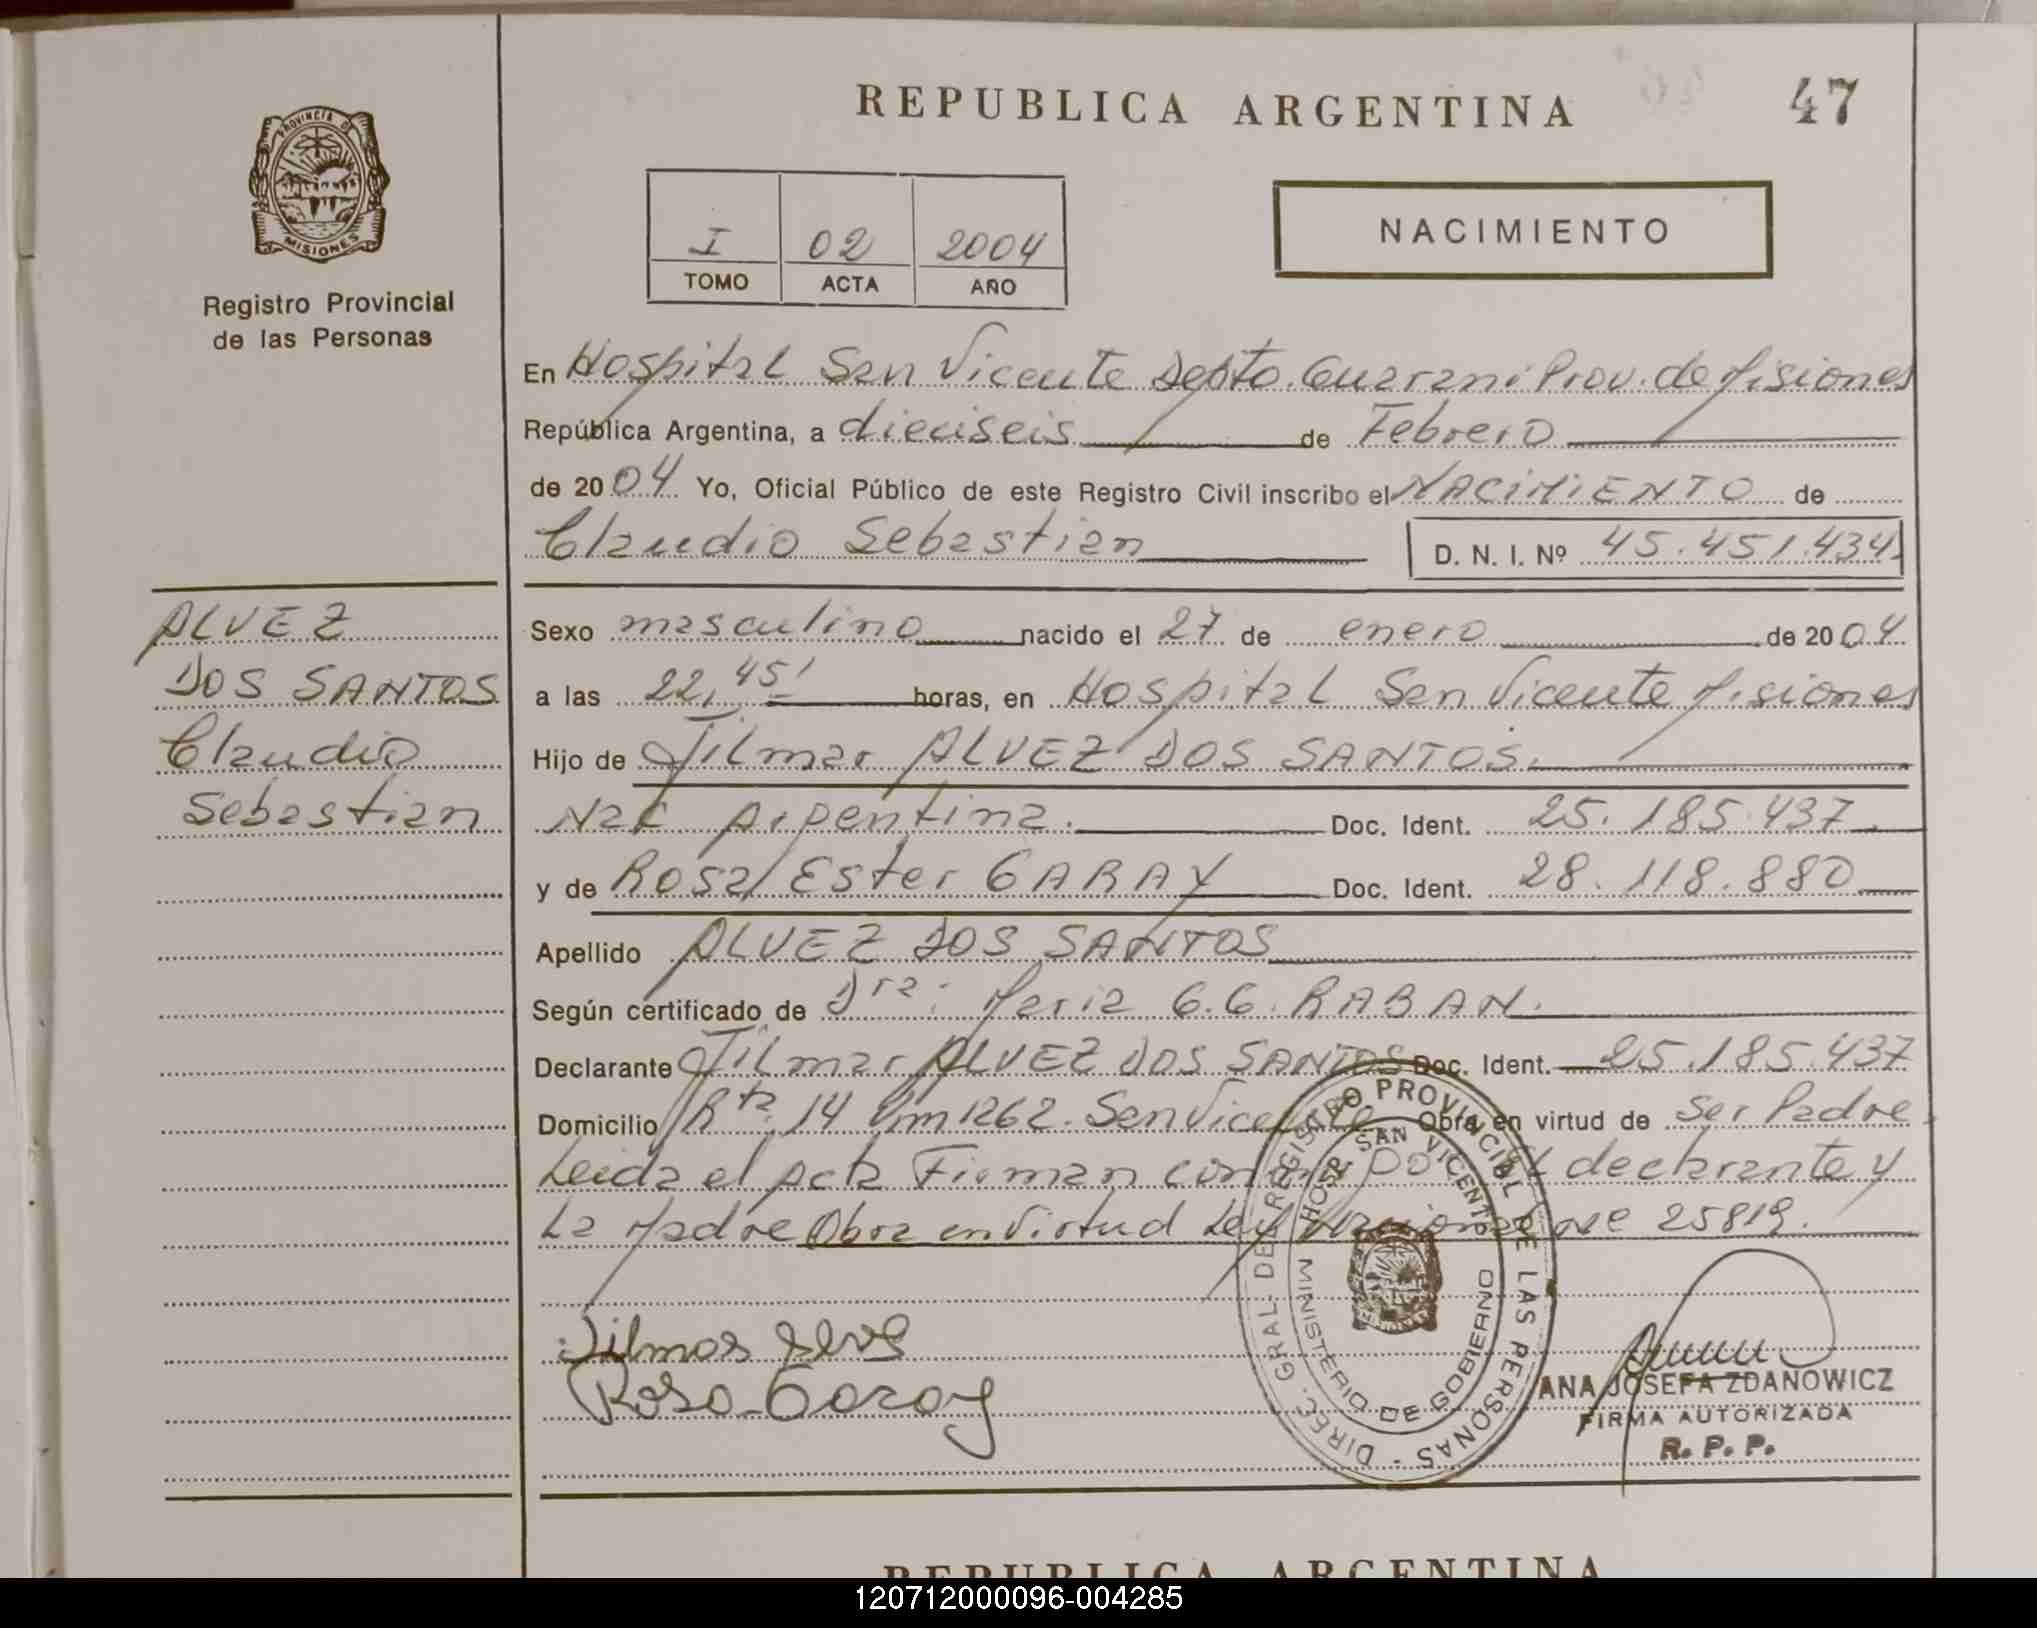 REPUBLICA ARGENTINA
47
PROVINCIA DE
MISIONES
Registro Provincial
de las Personas
I 02 2004
TOMO ACTA AÑO
NACIMIENTO
En Hospital San Vicente Depto. Guarani Prov. de Misiones
República Argentina, a dieciseis de Febrero
de 2004 Yo, Oficial Público de este Registro Civil inscribo el NACIMIENTO de
Claudio Sebastian
D. N. I. Nº 45.451.434.
ALVEZ
DOS SANTOS
Claudio
Sebastian
Sexo masculino nacido el 27 de enero de 2004
a las 22,45' horas, en Hospital San Vicente Misiones
Hijo de Jilmar ALVEZ DOS SANTOS.
Nac Argentina. Doc. Ident. 25.185.437.
y de Rosa Ester GARAY Doc. Ident. 28.118.880
Apellido ALVEZ DOS SANTOS
Según certificado de Dra: Maria G.G. RABAN.
Declarante Jilmar ALVEZ DOS SANTOS Doc. Ident. 25.185.437
Domicilio Rta. 14 Km 1262. San Vicente Obra en virtud de Ser Padre.
Leida el Acta Firman declarante y
La Madre Obra en Virtud Ley 25819.
Jilmar
Rosa Garay
DIREC. GRAL. DE REGISTRO PROVINCIAL DE LAS PERSONAS -
HOSP. SAN VICENTE
MINISTERIO DE GOBIERNO
ANA JOSEFA ZDANOWICZ
FIRMA AUTORIZADA
R. P. P.
REPUBLICA ARGENTINA
120712000096-004285